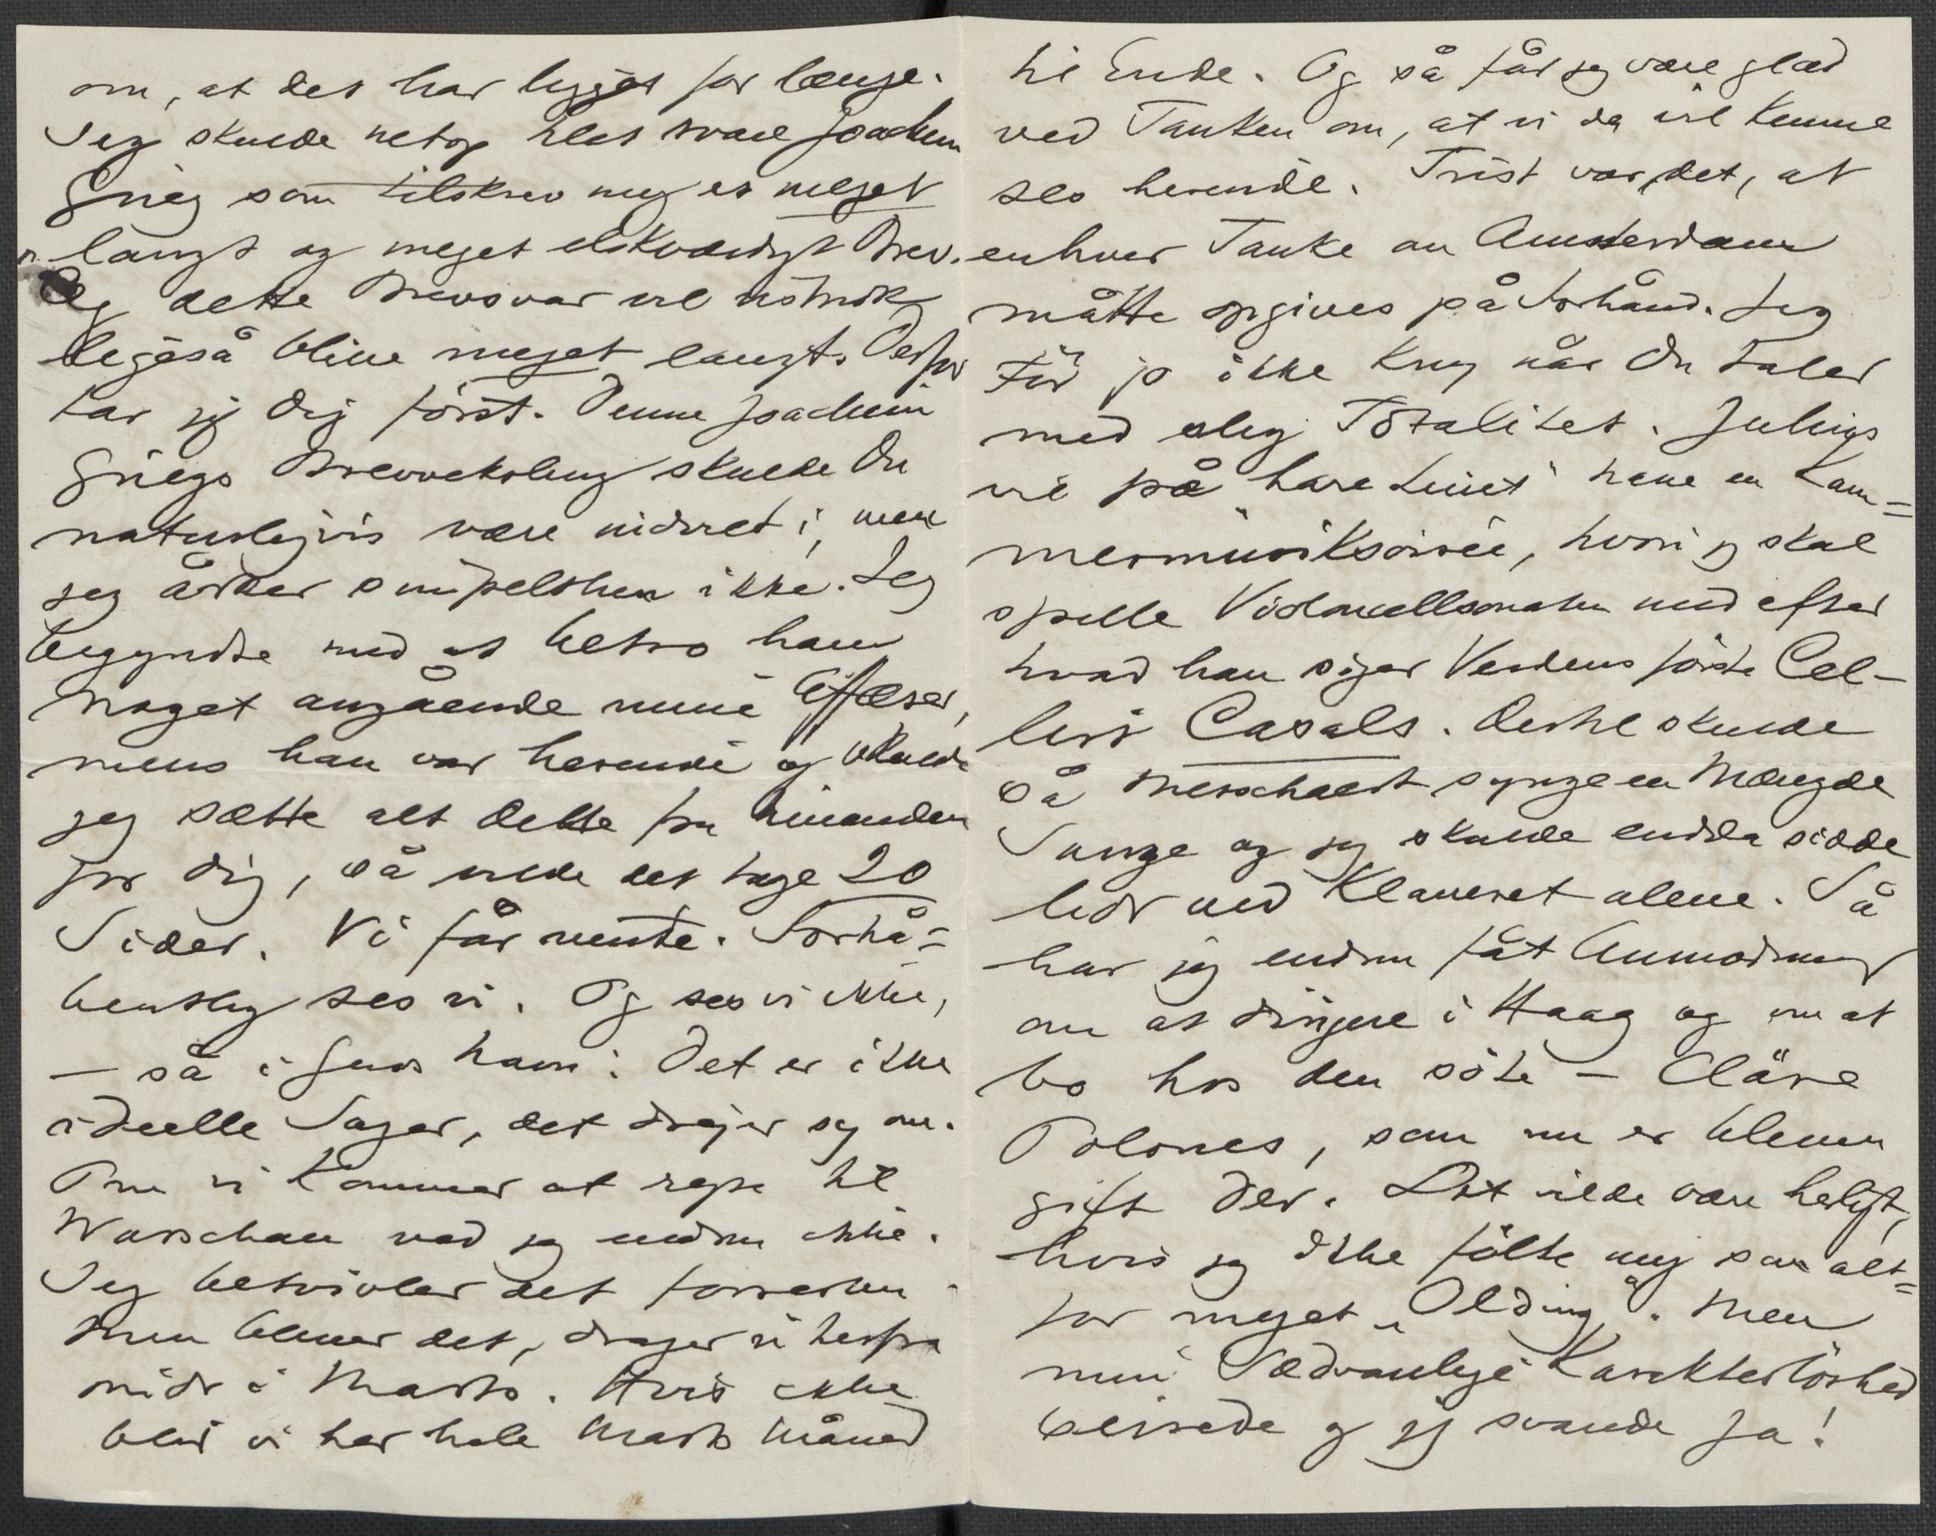 om, at det har ligget for længe.
Jeg skulde netop til at svare Joachim
Grieg som tilskrev mig et meget
langt og meget elskværdigt Brev.
Og dette Brevsvar vil
ligeså blive meget langt. Derfor
tar jeg Dig först. Denne Joachim
Griegs Brevveksling skulde Du
naturligvis være indviet i, men
jeg orker simpelthen ikke. Jeg
begyndte med at betro ham
Noget angående mine Affærer,
mens han var herinde og skulde
jeg sætte alt dette fra hinanden
for Dig, så vilde det tage 20
Sider. Vi får vente. Forhå=
bentlig ses vi. Og ses vi ikke,
– så i Guds Navn: Det er ikke
ideelle Sager, det drejer sig om.
Om vi kommer at rejse til
Warschau ved jeg endnu ikke.
Jeg betvivler det forresten.
Men bliver det, drager vi herfra
midt i Marts. Hvis ikke
blir vi her hele Marts Måned
til Ende. Og så får jeg være glad
ved Tanken om, at vi da vil kunne
ses herinde. Trist var det, at
enhver Tanke om Amsterdam
måtte opgives på Forhånd. Jeg
tör jo ikke kny når Du taler
med slig Totalitet. Julius
vil på bare Livet have en Kam=
mermusiksoirée, hvori jeg skal
spille Violoncellsonaten med efter
hvad han siger Verdens förste Cel-
list Casals. Dertil skulde
så Messchaert synge en Mængde
Sange og jeg skulde endda sidde
lidt ved Klaveret alene. Så
har jeg endnu fåt Anmodning
om at dirigere i Haag og om at
bo hos den söte – Cläre
Polones, som nu er bleven
gift der. Det vilde være herligt,
hvis jeg ikke fölte mig som alt=
for meget „Olding“. Men
min sædvanlige Karakterlöshed
seirede og jeg svarede Ja!